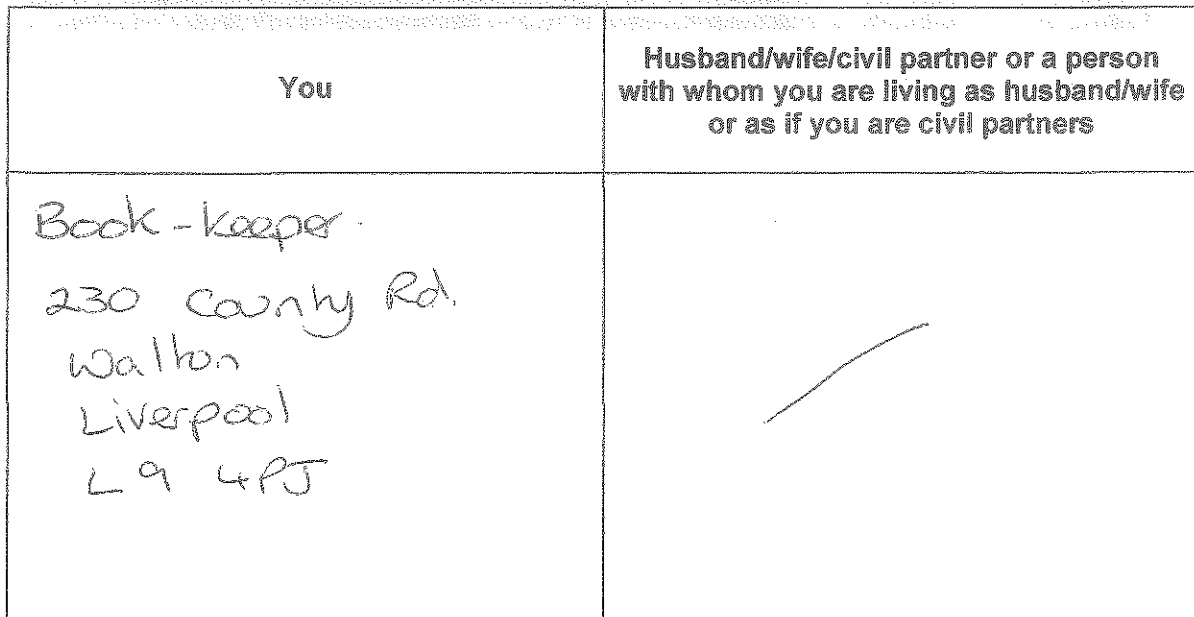 You
Husband/wife/civil partner or a person
with whom you are living as husband/wife
or as if you are civil partners
Book-keeper.
230 County Rd.
Walton
Liverpool
L9 4PJ